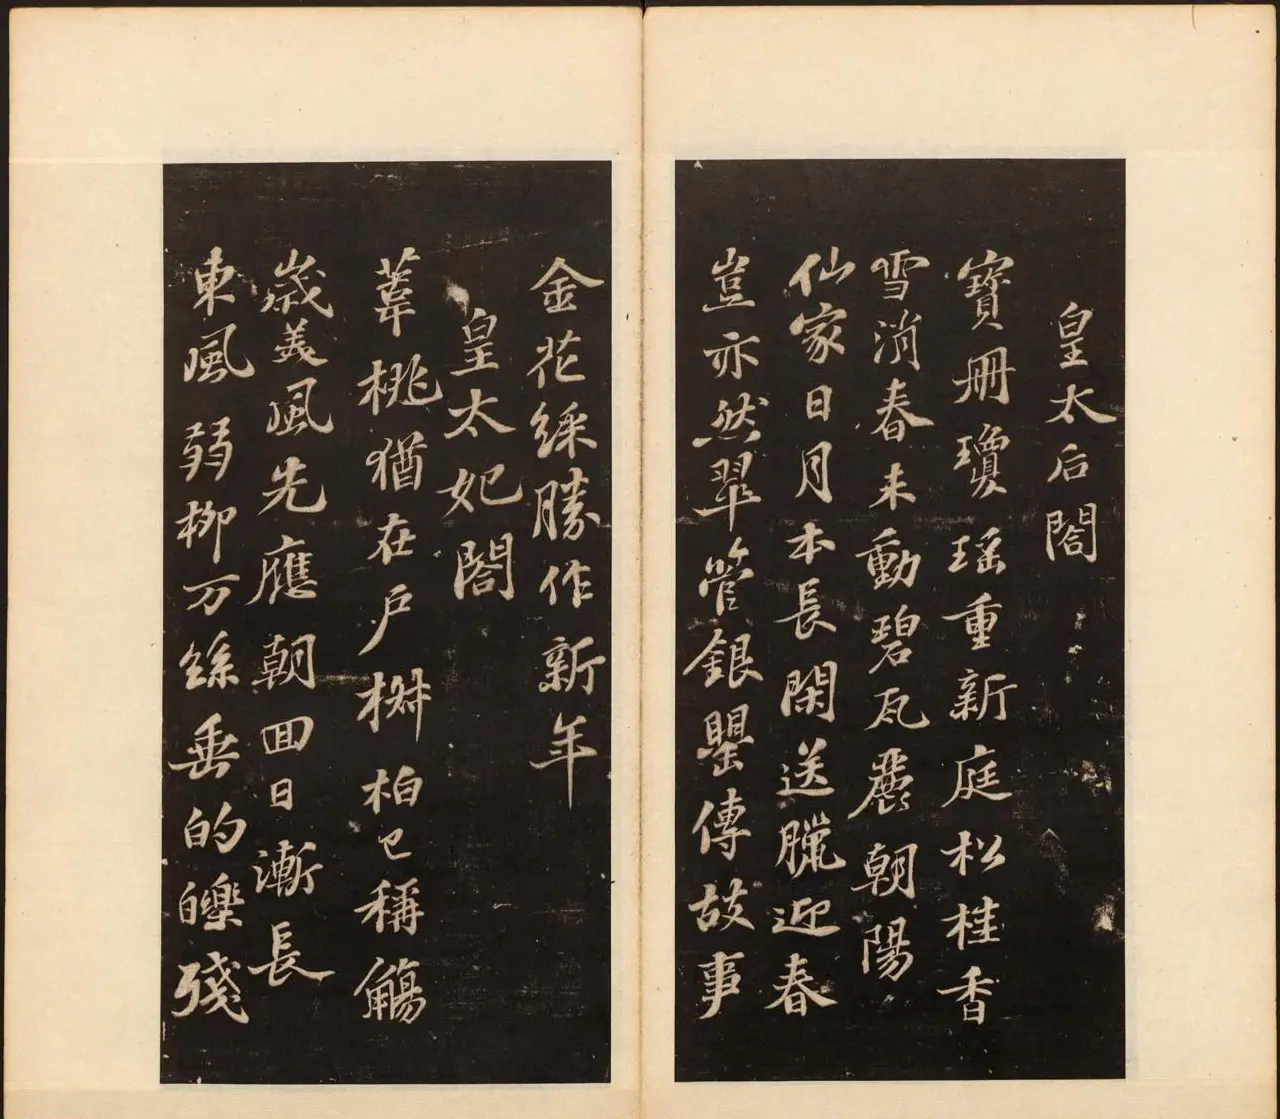 皇太后閤
寶冊瓊瑤重新庭松桂香
雪消春未動碧瓦麗朝陽
仙家日月本長閑送臘迎春
豈亦然翠管銀罌傳故事
金花綵勝作新年
皇太妃閤
葦桃猶在戶椒柏已稱觴
歲美風先應朝回日漸長
東風弱柳万絲垂的皪殘